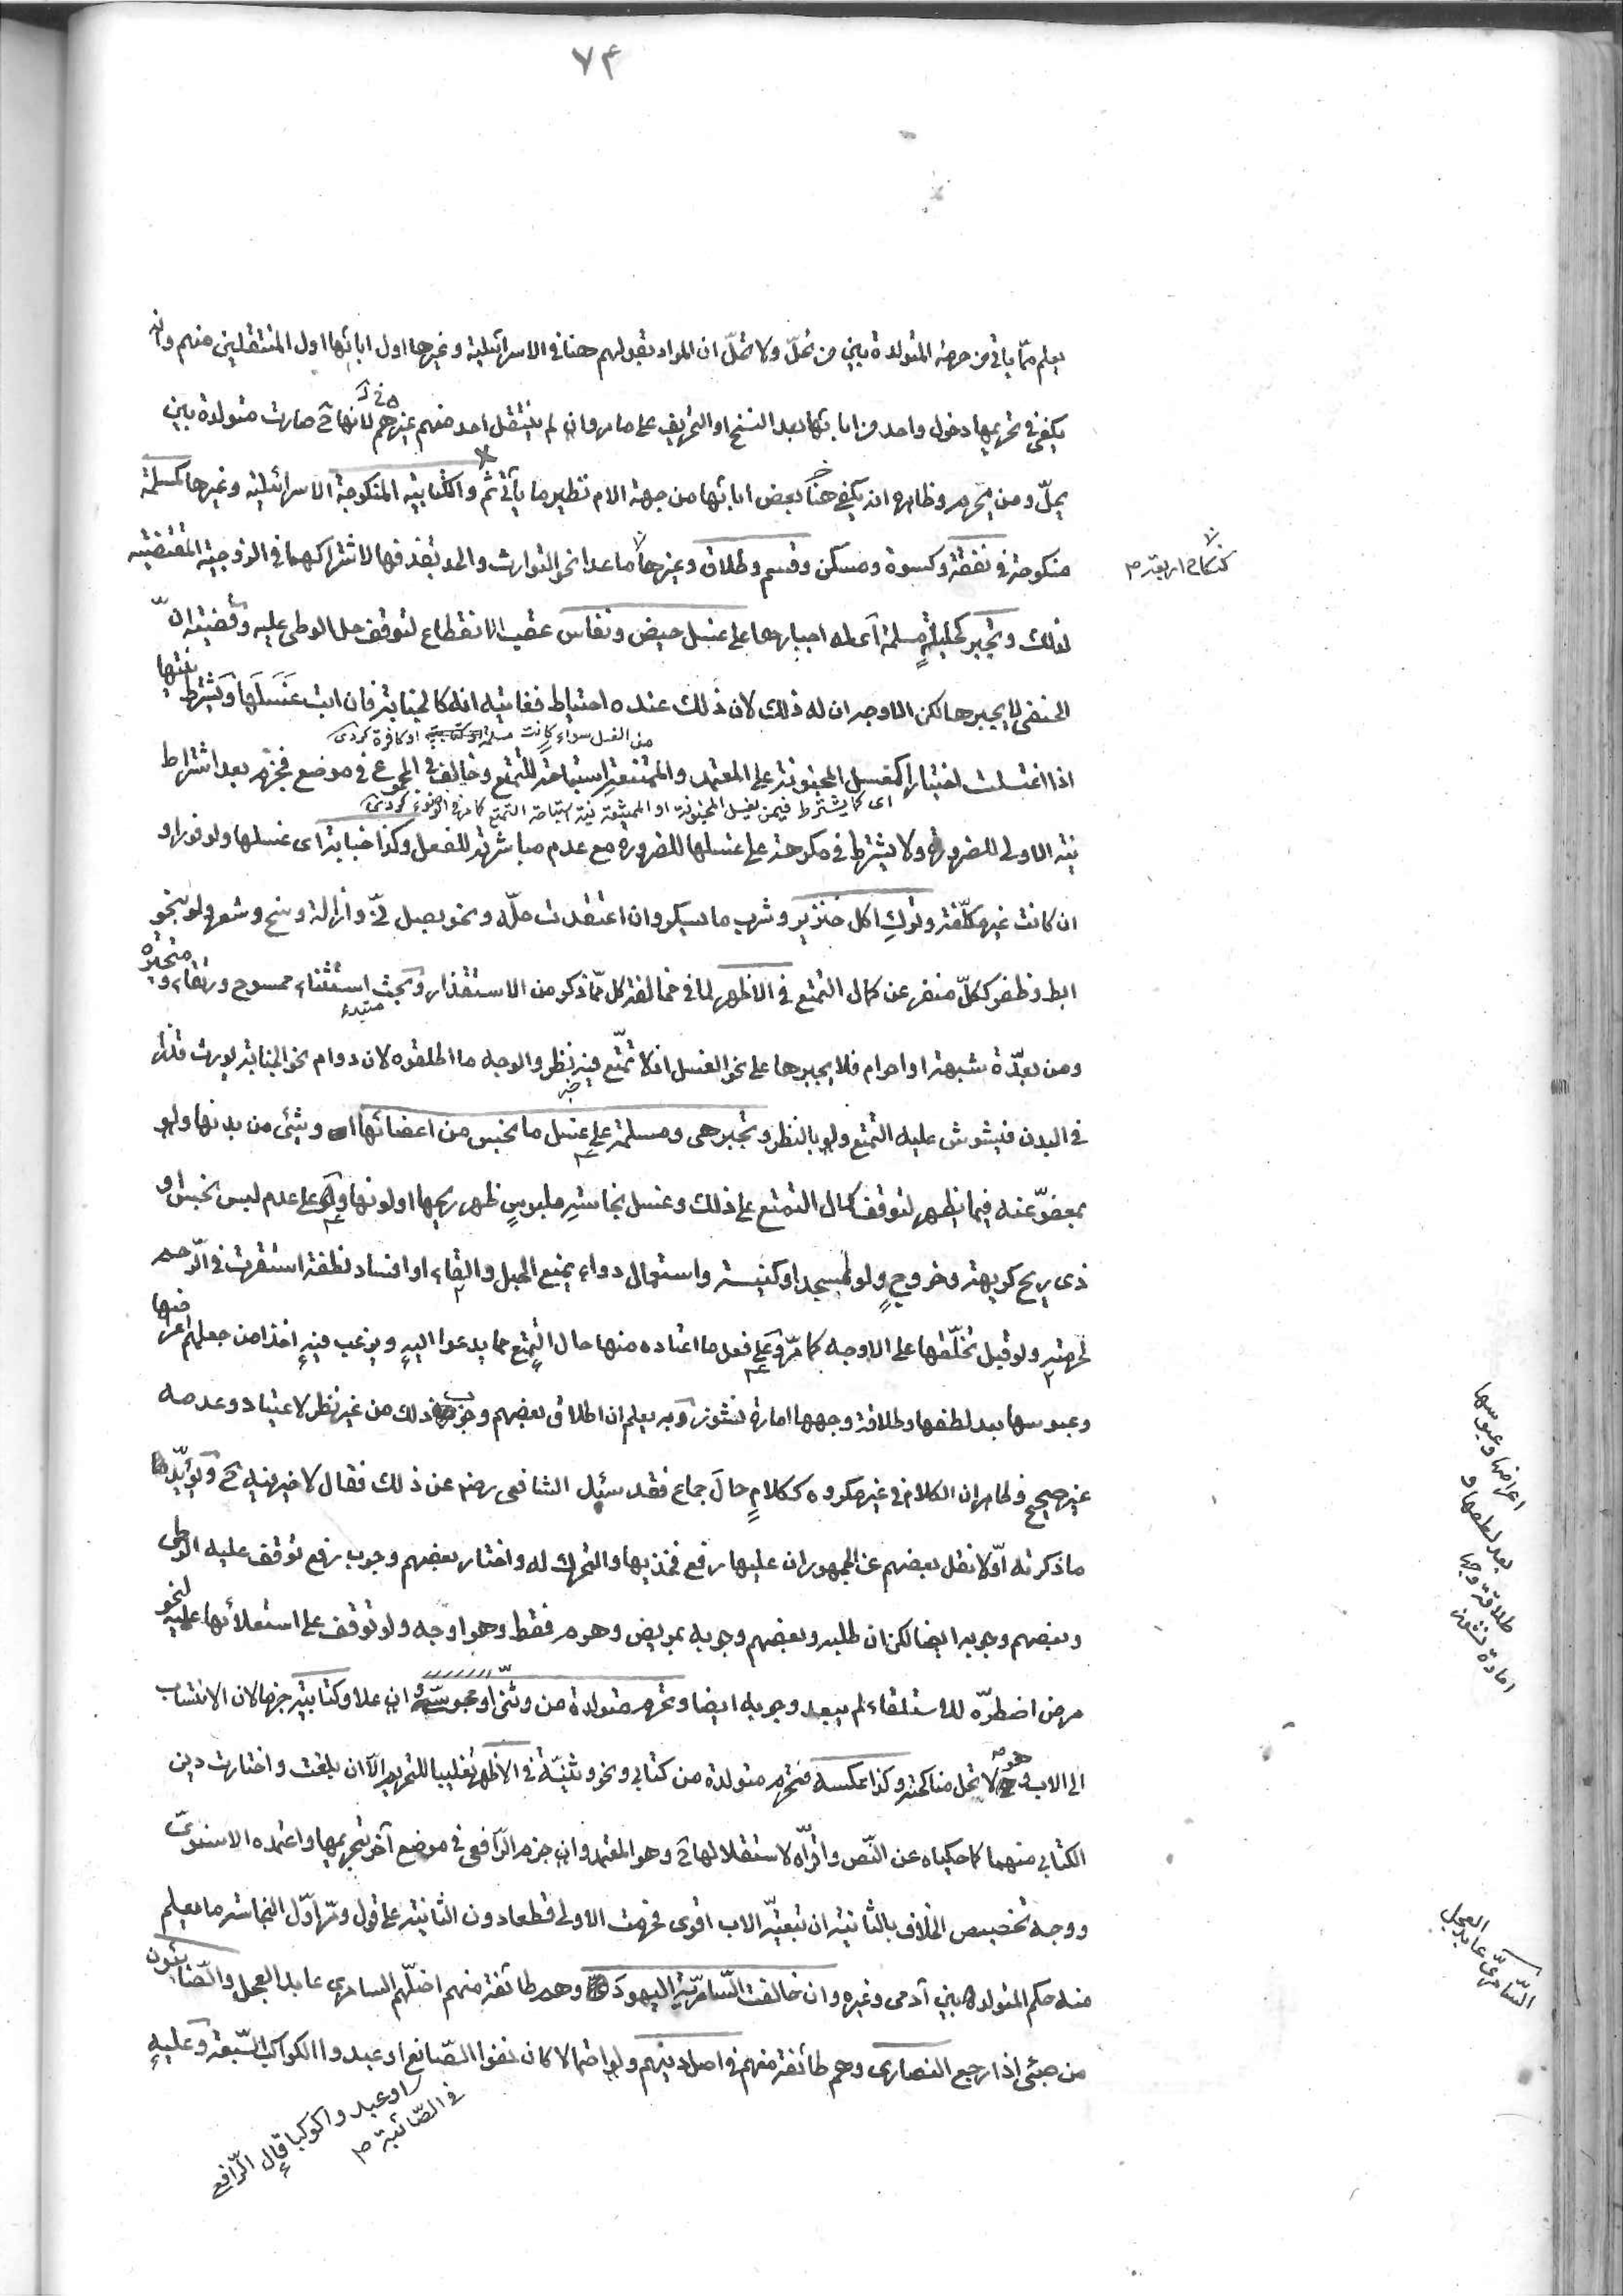 ٧٤
يعلم مما يأتي من حرمة المتولدة بين من تحل ولا تحل ان المراد بقولهم هنا في الاسرائيلية وغيرها اول ابائها اول المنتقلين منهم وانه
يكفي في تحريمها دخول واحد من ابائها بعد النسخ او التحريف على ما مر وان لم ينتقل احد منهم غيرهم لانها ح صارت متولدة بين
يحلّ ومن يحرم وظاهره انه يكفي هنا بعض ابائها من جهة الام نظير ما يأتي ثم والكتابية المنكوحة الاسرائيلية وغيرها كمسلمة
منكوحة في نفقة وكسوة ومسكن وقسم وطلاق وغيرها ما عدا نحو التوارث والحد بقذفها لاشتراكهما في الزوجية المقتضية
كنكاح اربعة م
لذلك وتجبر كحليلة مسلمة أي له اجبارها على غسل حيض ونفاس عقب الانقطاع لتوقف حل الوطئ عليه وقضيته انّ
الحنفي لا يجبرها لكن الاوجه ان له ذلك لان ذلك عنده احتياط فغايته انه كالجنابة فان ابت غسلها ويشترط نيتها
من الغسل سواء كانت مسلمة او كافرة كردى
اذا اغتسلت اختيارا كمغسل المجنونة على المعتمد والممتنعة استباحة التمتع وخالف في المجموع في موضع فجزم بعد اشتراط
اى كما يشترط فيمن يغسل المجنونة او الممتنعة نية استباحة التمتع كما مر في الوضوء كردى
نية الاولى للضرورة ولا يشترط في مكرهة على غسلها للضرورة مع عدم مباشرته للفعل وكذا جنابة اى غسلها ولو فورا و
ان كانت غير مكلّفة وترك اكل خنزير وشرب ما يسكر وان اعتقدت حلّه ونحو بصل نيّ وازالة وسخ وشعر ولو بنحو
ابط وظفر ككلّ منفر عن كمال التمتع في الاظهر لما في مخالفة كل مما ذكر من الاستقذار وبحث استثناء ممسوح ورتقاء ومتحيره
مبتدء
ومن بعدّة شبهة او احرام فلا يجبرها على نحو الغسل اذ لا تمتّع فيه نظر والوجه ما اطلقوه لان دوام نحو الجنابة يورث قذرا
في البدن فيشوش عليه التمتع ولو بالنظر وتجبر هى ومسلمة على غسل ما نجس من اعضائها وشئ من بدنها ولو
بمعفوّ عنه فيما يظهر لتوقف كمال التمتع على ذلك وغسل نجاسة ملبوس ظهر ريحها او لونها وعلى عدم لبس نجس او
ذى ريح كريهة وخروج ولو لمسجد او كنيسة واستعمال دواء يمنع الحبل والقاء او افساد نطفة استقرت في الرّحم
لحرمته ولو قبل تخلّقها على الاوجه كما مرّ وعلى فعل ما اعتاده منها حال التمتع مما يدعوا اليه ويرغب فيه اخذا من جعلهم اعراضها
وعبوسها بعد لطفها وطلاقة وجهها امارة نشوز وبه يعلم ان اطلاق بعضهم وجوب ذلك من غير نظر لاعتياد وعدمه
غير صحيح وظاهر ان الكلام في غير مكروه ككلام حال جماع فقد سئل الشافعى رضه عن ذلك فقال لا خير فيه ح ويؤيّد
ما ذكرته أوّلا نقل بعضهم عن الجمهور ان عليها رفع فخذيها والتحرك له واختار بعضهم وجوب رفع توقف عليه الوطئ
وبعضهم وجوبه ايضا لكن ان طلبه وبعضهم وجوبه بمريض وهرم فقط وهو اوجه ولو توقف على استعلائها عليه لنحو
مرض اضطرّه للاستلقاء لم يبعد وجوبه ايضا وتحرم متولدة من وثنى او مجوسى وان علا وكتابية جزما لان الانتساب
الى الاب وهو لا تحل مناكحته وكذا عكسه فتحرم متولدة من كتابى ونحو وثنيّة في الاظهر تغليبا للتحريم الا ان بلغت واختارت دين
الكتابى منهما كما حكياه عن النّص واقرّاه لاستقلالها ح وهو المعتمد وان جزم الرّافعى في موضع آخر بتحريمها واعتمده الاسنوى
ووجه تخصيص الخلاف بالثانية ان تبعيّة الاب اقوى فحرمت الاولى قطعا دون الثانية على قول ومرّ اوّل النجاسة ما يعلم
منه حكم المتولد بين آدمى وغيره وان خالفت السّامريّة اليهود وهم طائفة منهم اصلهم السامرى عابد العجل والصّابئون
من صبئى إذا رجع النصارى وهم طائفة منهم في اصل دينهم ولو احتمالا كان نفوا الصّانع او عبدوا الكواكب السّبعة وعليه
او عبدوا كوكبا قال الرّافعى
في الصّائبة م
اعراضها وعبوسها
بعد لطفها و
طلاقة وجهها
امارة نشوز
السّامرىّ عابد العجل